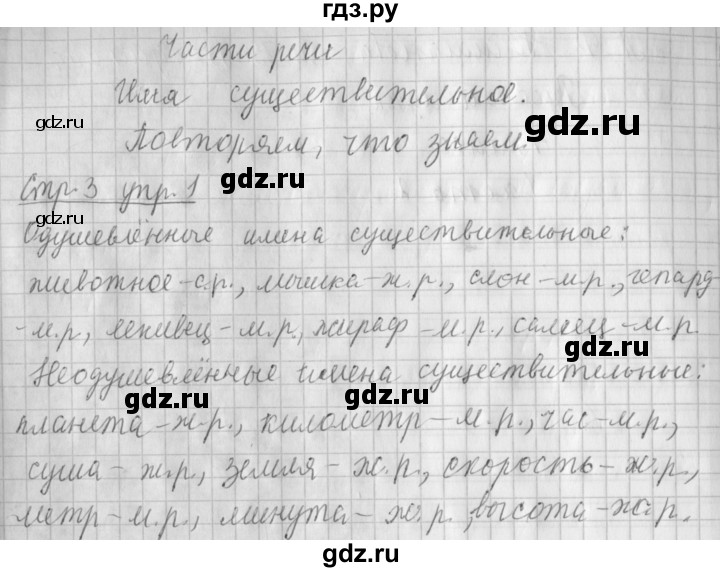 гдз.ру
Части речи
Имя существительное.
gdz.ru gdz.ru
Повторяем, что знаем.
Стр. 3 упр. 1 gdz.ru
gdz.ru
Одушевлённые имена существительные:
животное - с.р., мышка - ж.р., слон - м.р., гепард
- м.р., ленивец - м.р., жираф - м.р., самец - м.р.
gdz.ru
Неодушевлённые имена существительные:
gdz.ru gdz.ru
планета - ж.р., километр - м.р., час - м.р.,
суша - ж.р., земля - ж.р., скорость - ж.р.,
метр - м.р., минута - ж.р., высота - ж.р.
gdz.ru